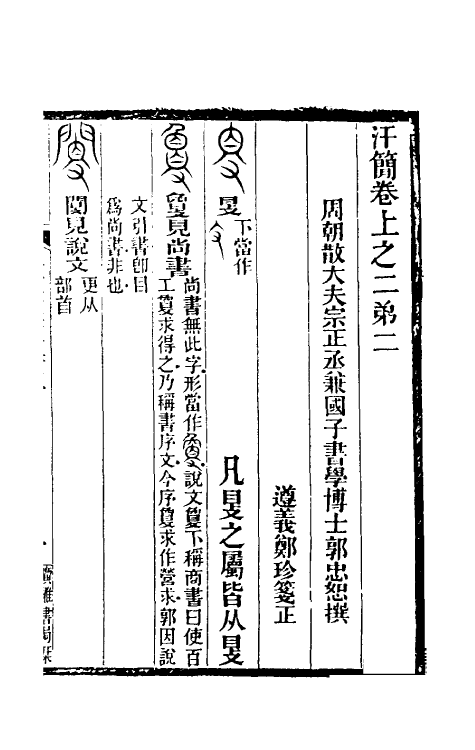 汗簡卷上之二弟二
周朝散大夫宗正丞兼國子書學博士郭忠恕撰
遵義鄭珍箋正
𥄎
下當作
凡𥄎之屬皆从𥄎
敻見尚書
尚書無此字形當作 說文敻下稱商書曰使百
工敻求得之乃稱書序文今序敻求作營求郭因說
文引書卽目
為尚書非也
閿見說文
更从
部首
廣雅書局栞